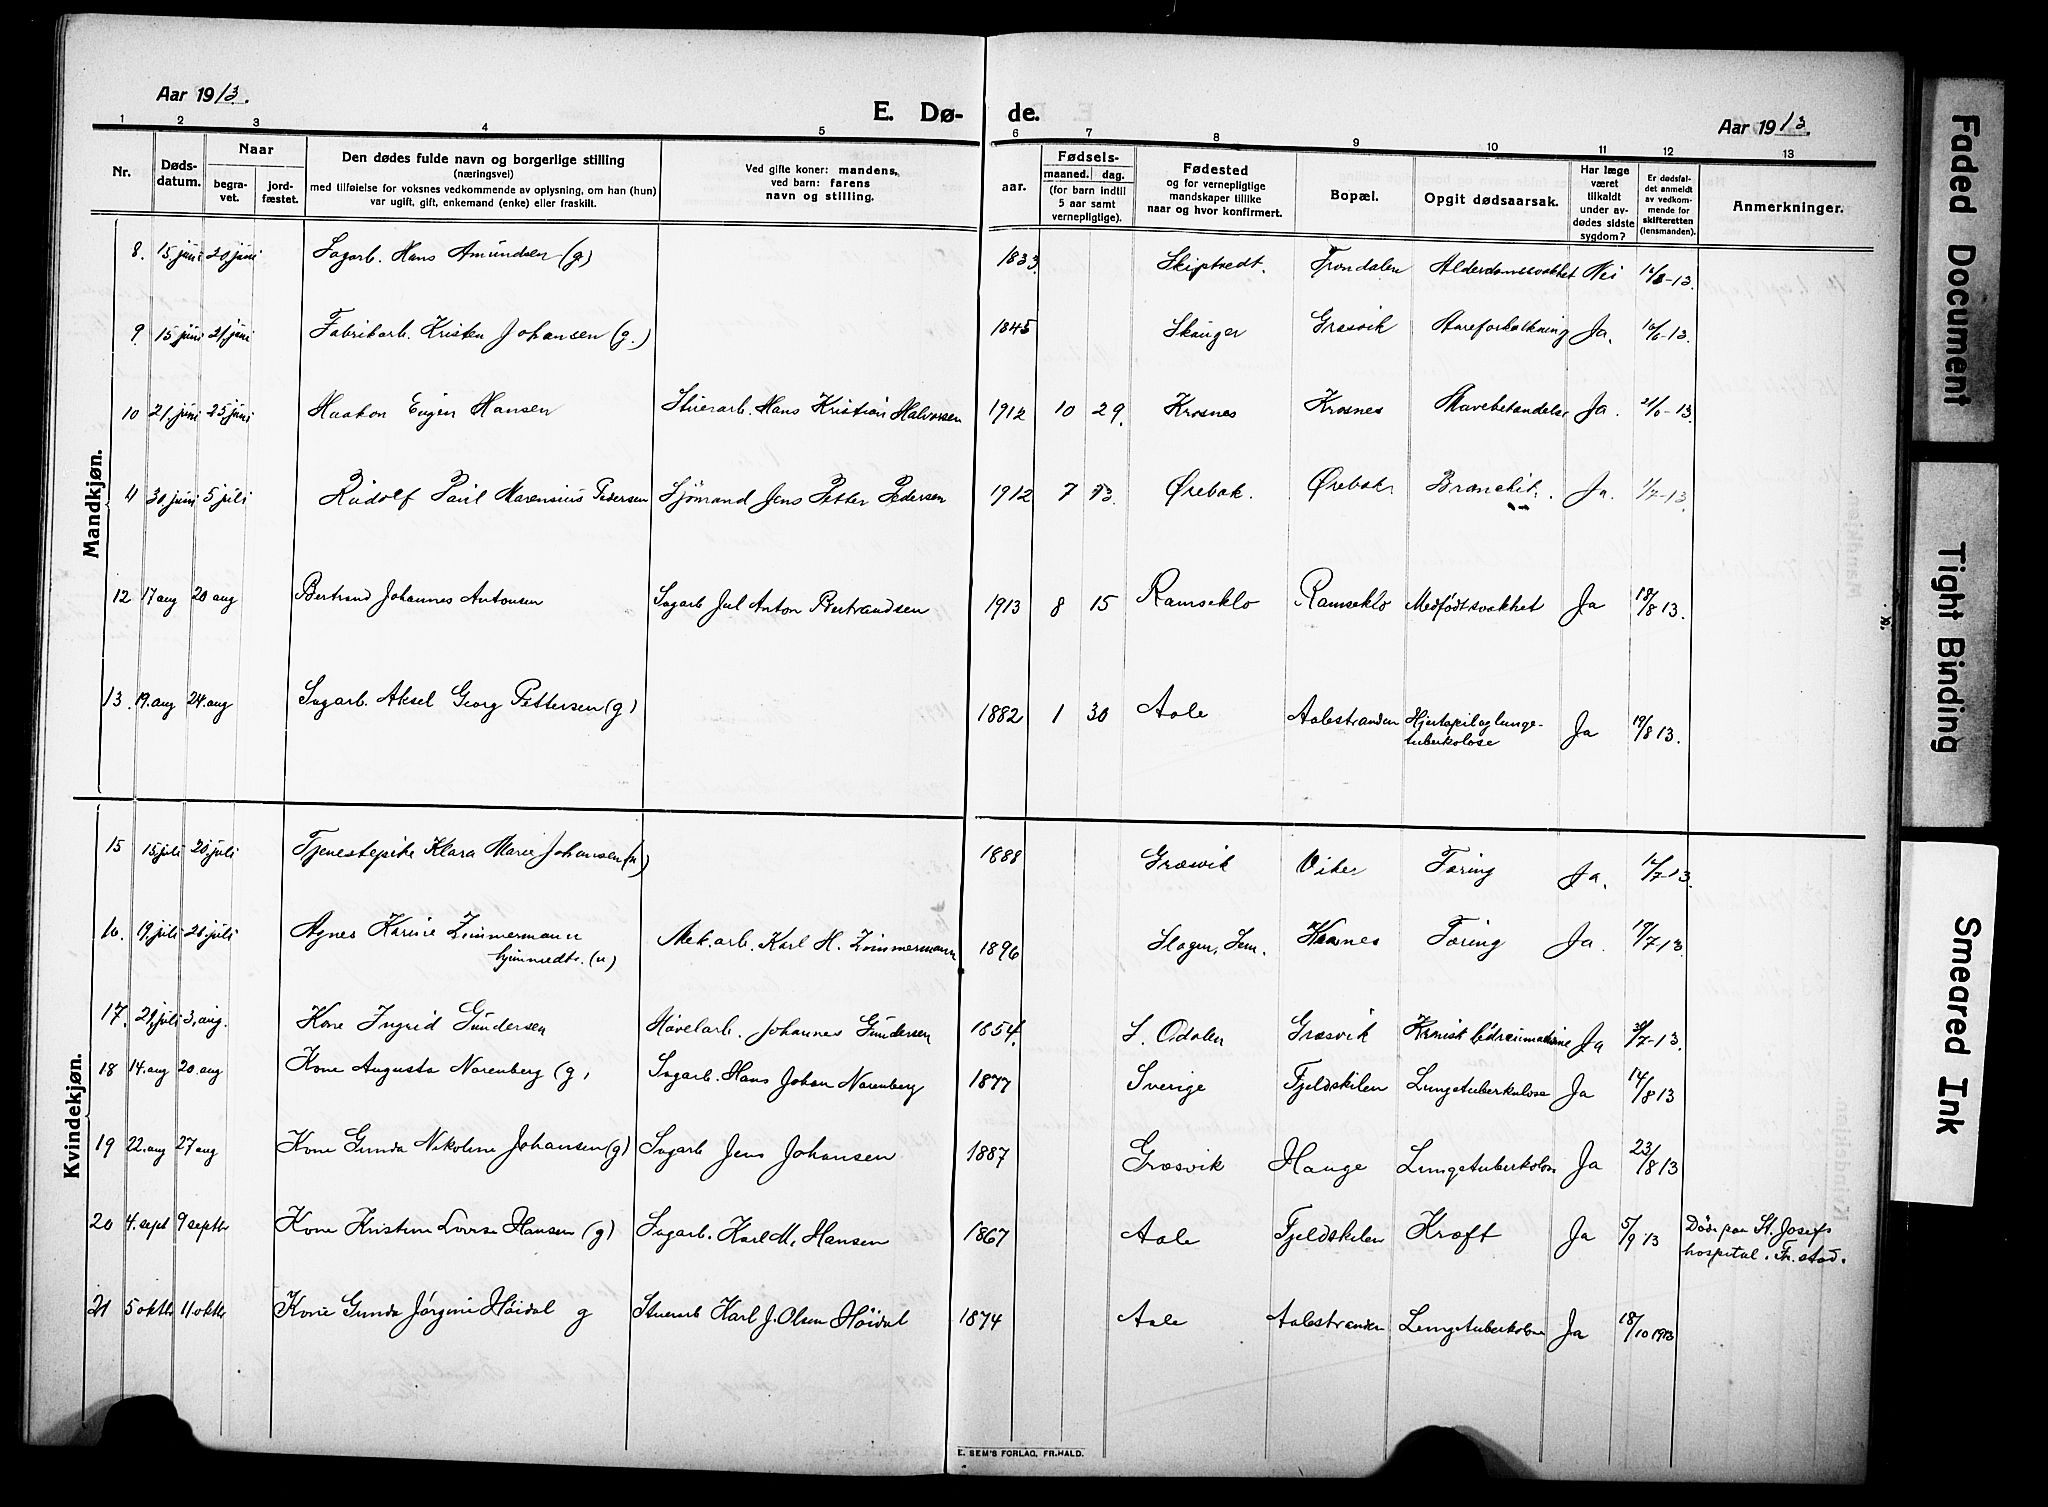 Aar 1913.
E. Dø-
de.
Aar 1913.
1 2 3 4 5 6 7 8 9 10 11 12 13
Nr.
Døds-
datum.
Naar
begra-
vet.
jord-
fæstet.
Den dødes fulde navn og borgerlige stilling
(næringsvei)
med tilføielse for voksnes vedkommende av oplysning, om han (hun)
var ugift, gift, enkemand (enke) eller fraskilt.
Ved gifte koner: mandens,
ved barn: farens
navn og stilling.
aar.
Fødsels-
maaned. dag.
(for barn indtil
5 aar samt
vernepligtige).
Fødested
og for vernepligtige
mandskaper tillike
naar og hvor konfirmert.
Bopæl.
Opgit dødsaarsak.
Har læge
været
tilkaldt
under av-
dødes sidste
sygdom?
Er dødsfal-
det anmeldt
av vedkom-
mende for
skifteretten
(lensmanden).
Anmerkninger.
Mandkjøn.
8. 15 juni 20 juni Sagarb. Hans Amundsen (g) 1833 Skiptvedt. Trondalen Alderdomssvakhet Nei
9 15 juni 21 juni Fabrikarb. Kristen Johansen (g.) 1845 Skauger Græsvik Aareforkalkning Ja. 16/6-13.
10 21 juni 25 juni Haakon Eugen Hansen Stuerarb. Hans Kristian Halvorsen 1912 10 29. Krosnes Krosnes Mavebetændelse Ja. 21/6-13.
11 30 juni 5 juli Rudolf Paul Marensius Pedersen Sjömand Jens Petter Pedersen 1912 7 13. Ørebæk. Ørebæk Bronchit. Ja. 1/7-13.
12 17 aug 20 aug Bertrand Johannes Antonsen Sagarb Jul Anton Bertrandsen 1913 8 15 Ramseklo Ramseklo Medfødt svakhet Ja 18/8 13.
13. 19. aug 24. aug Sagarb. Aksel Georg Pettersen (g) 1882 1 30 Aale Aalestranden Hjertefeil og lunge-
tuberkolose Ja 19/8 13.
Kvindekjøn.
15 15 juli 20 juli Tjenestepike Klara Marie Johansen (u) 1888 Græsvik Viker Tæring Ja. 16/7-13.
16. 19. juli 26. juli Agnes Karine Zimmermann
hjemmedtr. (u) Mek. arb. Karl H. Zimmermann 1896 Slagen, Sem. Krosnes Tæring Ja. 19/7-13.
17. 29. juli 3. aug. Kone Ingrid Gundersen Høvelarb. Johannes Gundersen 1854. S. Odalen Græsvik Kronisk ledreumatisme Ja 30/7-13.
18 14. aug 20. aug Kone Augusta Norenberg (g) Sagarb. Hans Johan Norenberg 1877 Sverige Fjeldskilen Lungetuberkulose Ja 14/8 13
19 22. aug 27 aug Kone Gunda Nikoline Johansen (g) Sagarb Jens Johansen 1887 Græsvik Hauge Lungetuberkolose Ja 23/8 13
20 4. sept 9 septbr Kone Kristine Lovise Hansen (g) Sagarb. Karl M. Hansen 1867 Aale Fjeldskilen Kræft Ja 5/9 13 Døde paa St. Josefs
hospital. Fr. stad.
21 5 oktbr 11 oktbr Kone Gunda Jørgine Høidal g Stuerarb Karl J. Olsen Høidal 1874 Aale Aalestranden Lungetuberkolose Ja 18/10 1913
E. SEM'S FORLAG, FR.HALD.
Faded Document
Tight Binding
Smeared Ink